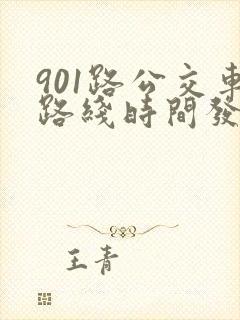 901路公交車
路綫時間發
王青